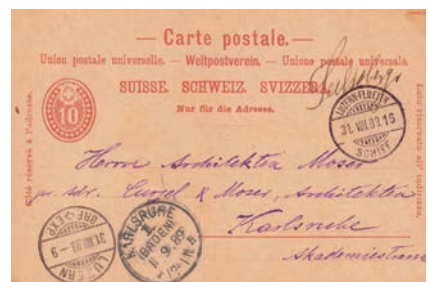 — Carte postale. —
Union postale universelle. — Weltpostverein. — Unione postale universale.
SUISSE. SCHWEIZ. SVIZZERA.
Nur für die Adresse.
10
LUZERN-FLUELEN
31. VIII. 89. 16
SCHIFF
Côté réservé à l'adresse.
Lato riservato all'indirizzo.
Herrn Architekten Moser
pr. adr. Curjel & Moser, Architekten
Karlsruhe
Akademiestrasse
LUZERN
31. VIII. 89 – 9
BRF. EXP.
KARLSRUHE
(BADEN)
1 9. 89